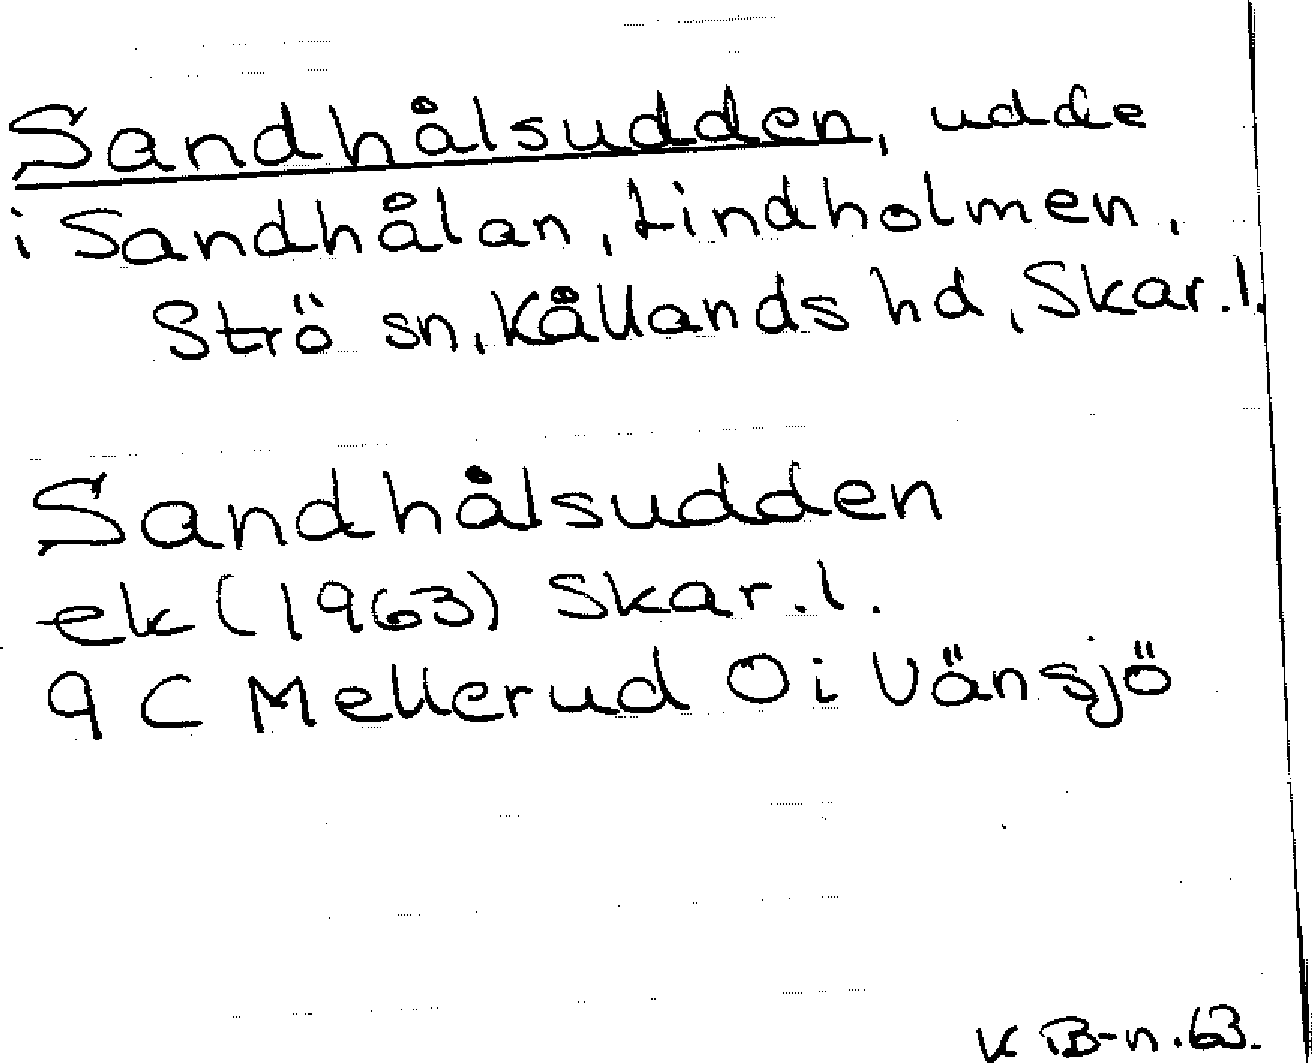 Sandhålsudden, udde
i Sandhålan, Lindholmen,
Strö sn, Kållands hd, Skar.l.
Sandhålsudden
ek (1963) Skar.l.
9 C Mellerud Oi Vänsjö
K B-n.63.